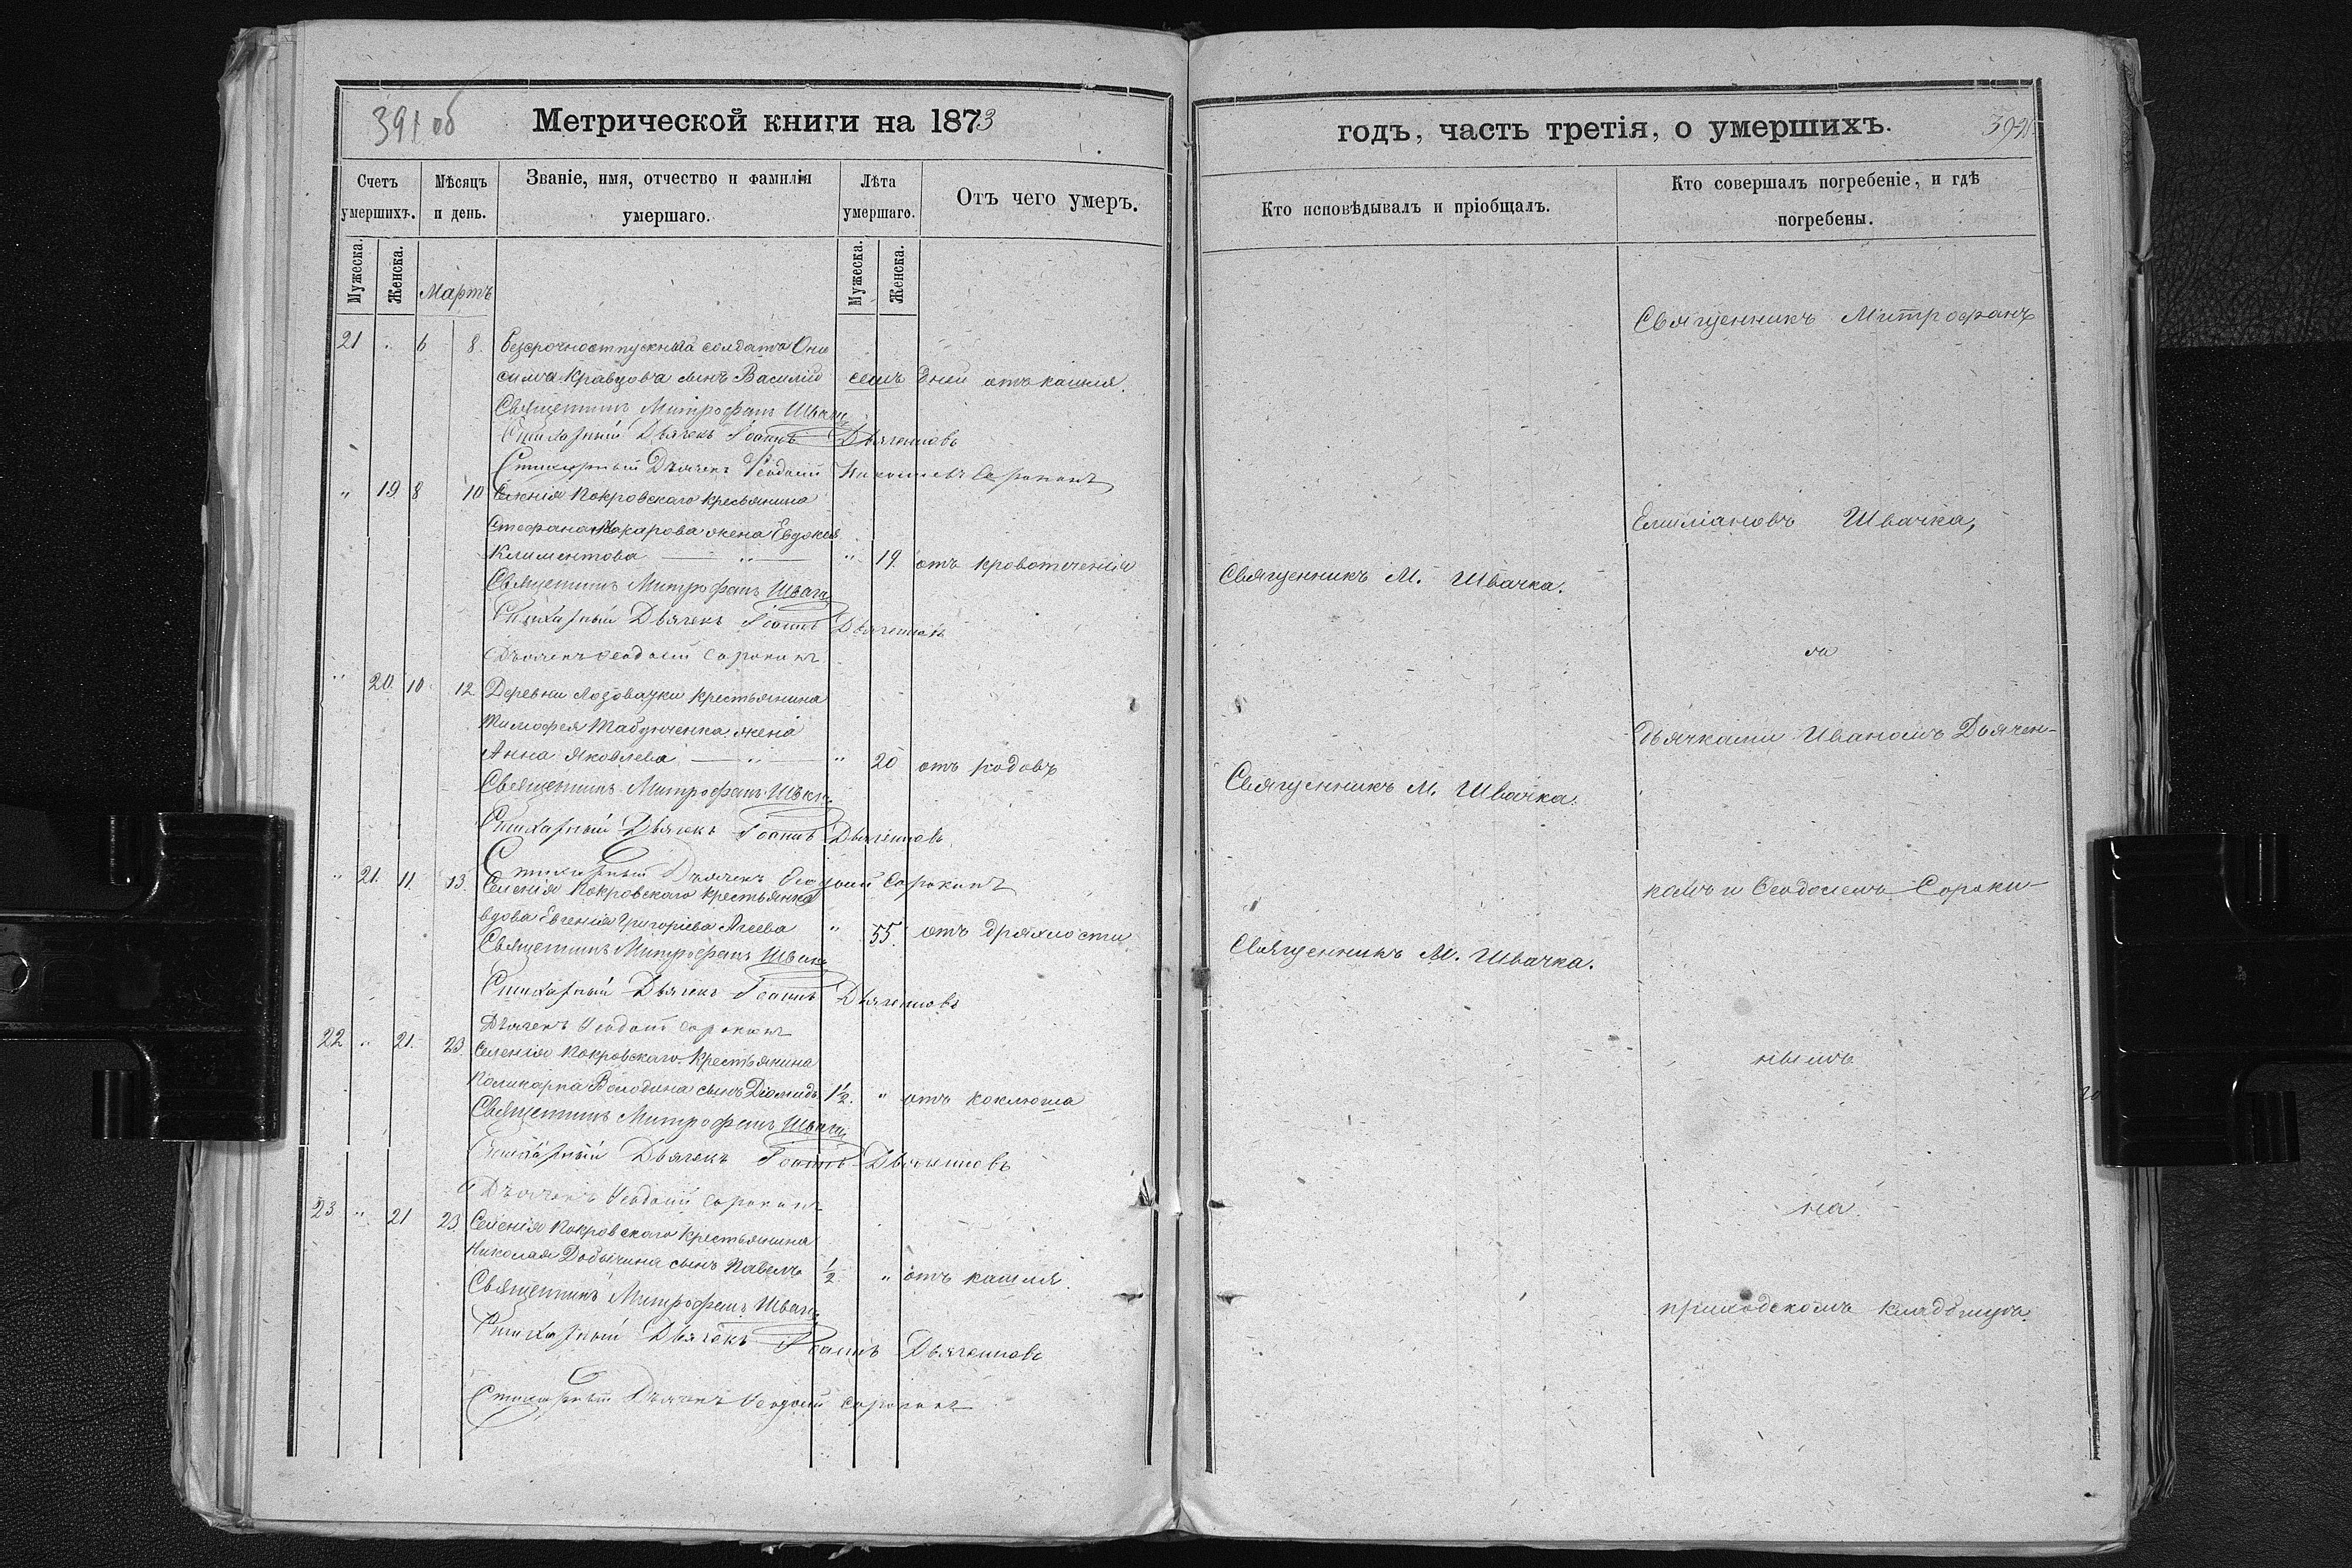 391 об
Метрической книги на 1873
Счетъ умершихъ.
Мѣсяцъ и день.
Званіе, имя, отчество и фамилія умершаго.
Лѣта умершаго.
Отъ чего умеръ.
Мужеска.
Женска.
Мартъ
Мужеска.
Женска.
21 " 6 8. Безсрочноотпускнаго солдата Они
сима Кравцова сынъ Василій семь дней отъ кашля.
Священникъ Митрофанъ Швачка
Стихарный Дьячекъ Іоаннъ Дьяченковъ
Стихарный Дьячекъ Ѳеодосій Сорокинъ
" 19. 8 10 Селенія Покровскаго крестьянина
Стефана Макарова жена Евдокія
Климентова " 19. отъ кровотеченія
Священникъ Митрофанъ Швачка
Стихарный Дьячекъ Іоаннъ Дьяченковъ
Дьячекъ Ѳеодосій Сорокинъ
" 20. 10 12 Деревни Лозоватки крестьянина
Тимофея Табунченка жена
Анна Яковлева " 20 отъ родовъ
Священникъ Митрофанъ Швачка
Стихарный Дьячекъ Іоаннъ Дьяченковъ
Стихарный Дьячекъ Ѳеодосій Сорокинъ
" 21. 11. 13. Селенія Покровскаго крестьянка
вдова Евгенія Григоріева Агеева " 55. отъ дряхлости
Священникъ Митрофанъ Швачка
Стихарный Дьячекъ Іоаннъ Дьяченковъ
Дьячекъ Ѳеодосій Сорокинъ
22 " 21. 23. Селенія Покровскаго крестьянина
Поликарпа Володина сынъ Діомидъ 1½. " отъ коклюша
Священникъ Митрофанъ Швачка
Стихарный Дьячекъ Іоаннъ Дьяченковъ
Дьячекъ Ѳеодосій Сорокинъ
23 " 21 23. Селенія Покровскаго крестьянина
Николая Добычина сынъ Павелъ ½ " отъ кашля.
Священникъ Митрофанъ Швачка
Стихарный Дьячекъ Іоаннъ Дьяченковъ
Стихарный Дьячекъ Ѳеодосій Сорокинъ
годъ, часть третія, о умершихъ.
392
Кто исповѣдывалъ и пріобщалъ.
Кто совершалъ погребеніе, и гдѣ погребены.
Священникъ М. Швачка.
Священникъ М. Швачка.
Священникъ М. Швачка.
Священникъ Митрофанъ
Емиліановъ Швачка,
съ
дьячками Иваномъ Дьячен-
камъ и Ѳеодосіемъ Сороки-
нымъ
на
приходскомъ кладбищѣ.